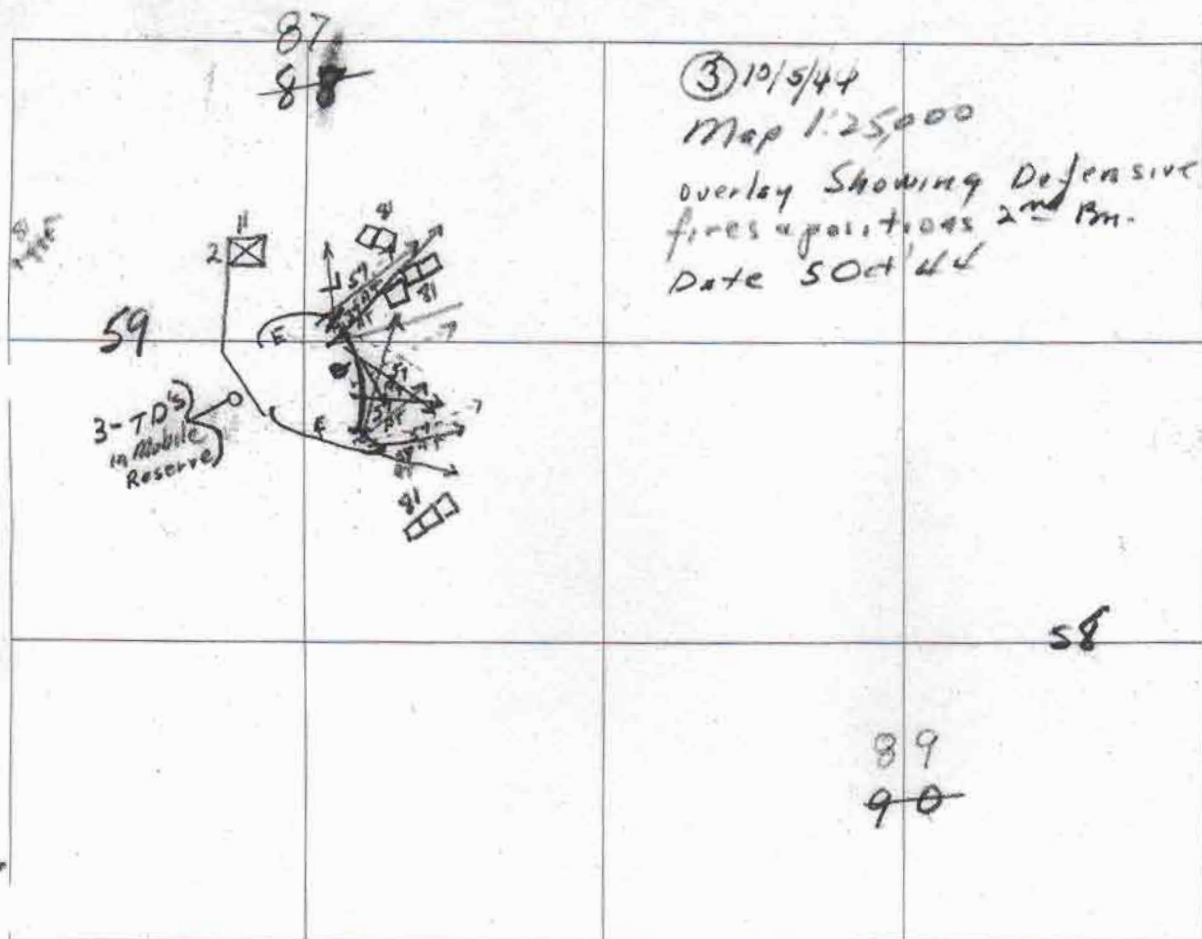 87
88
③ 10/5/44
Map 1:25,000
overlay Showing Defensive
fires & positions 2nd Bn.
Date 5 Oct '44
11
2
81
57
81
E
59
3-TD's
in Mobile
Reserve
57
E
81
58
89
90